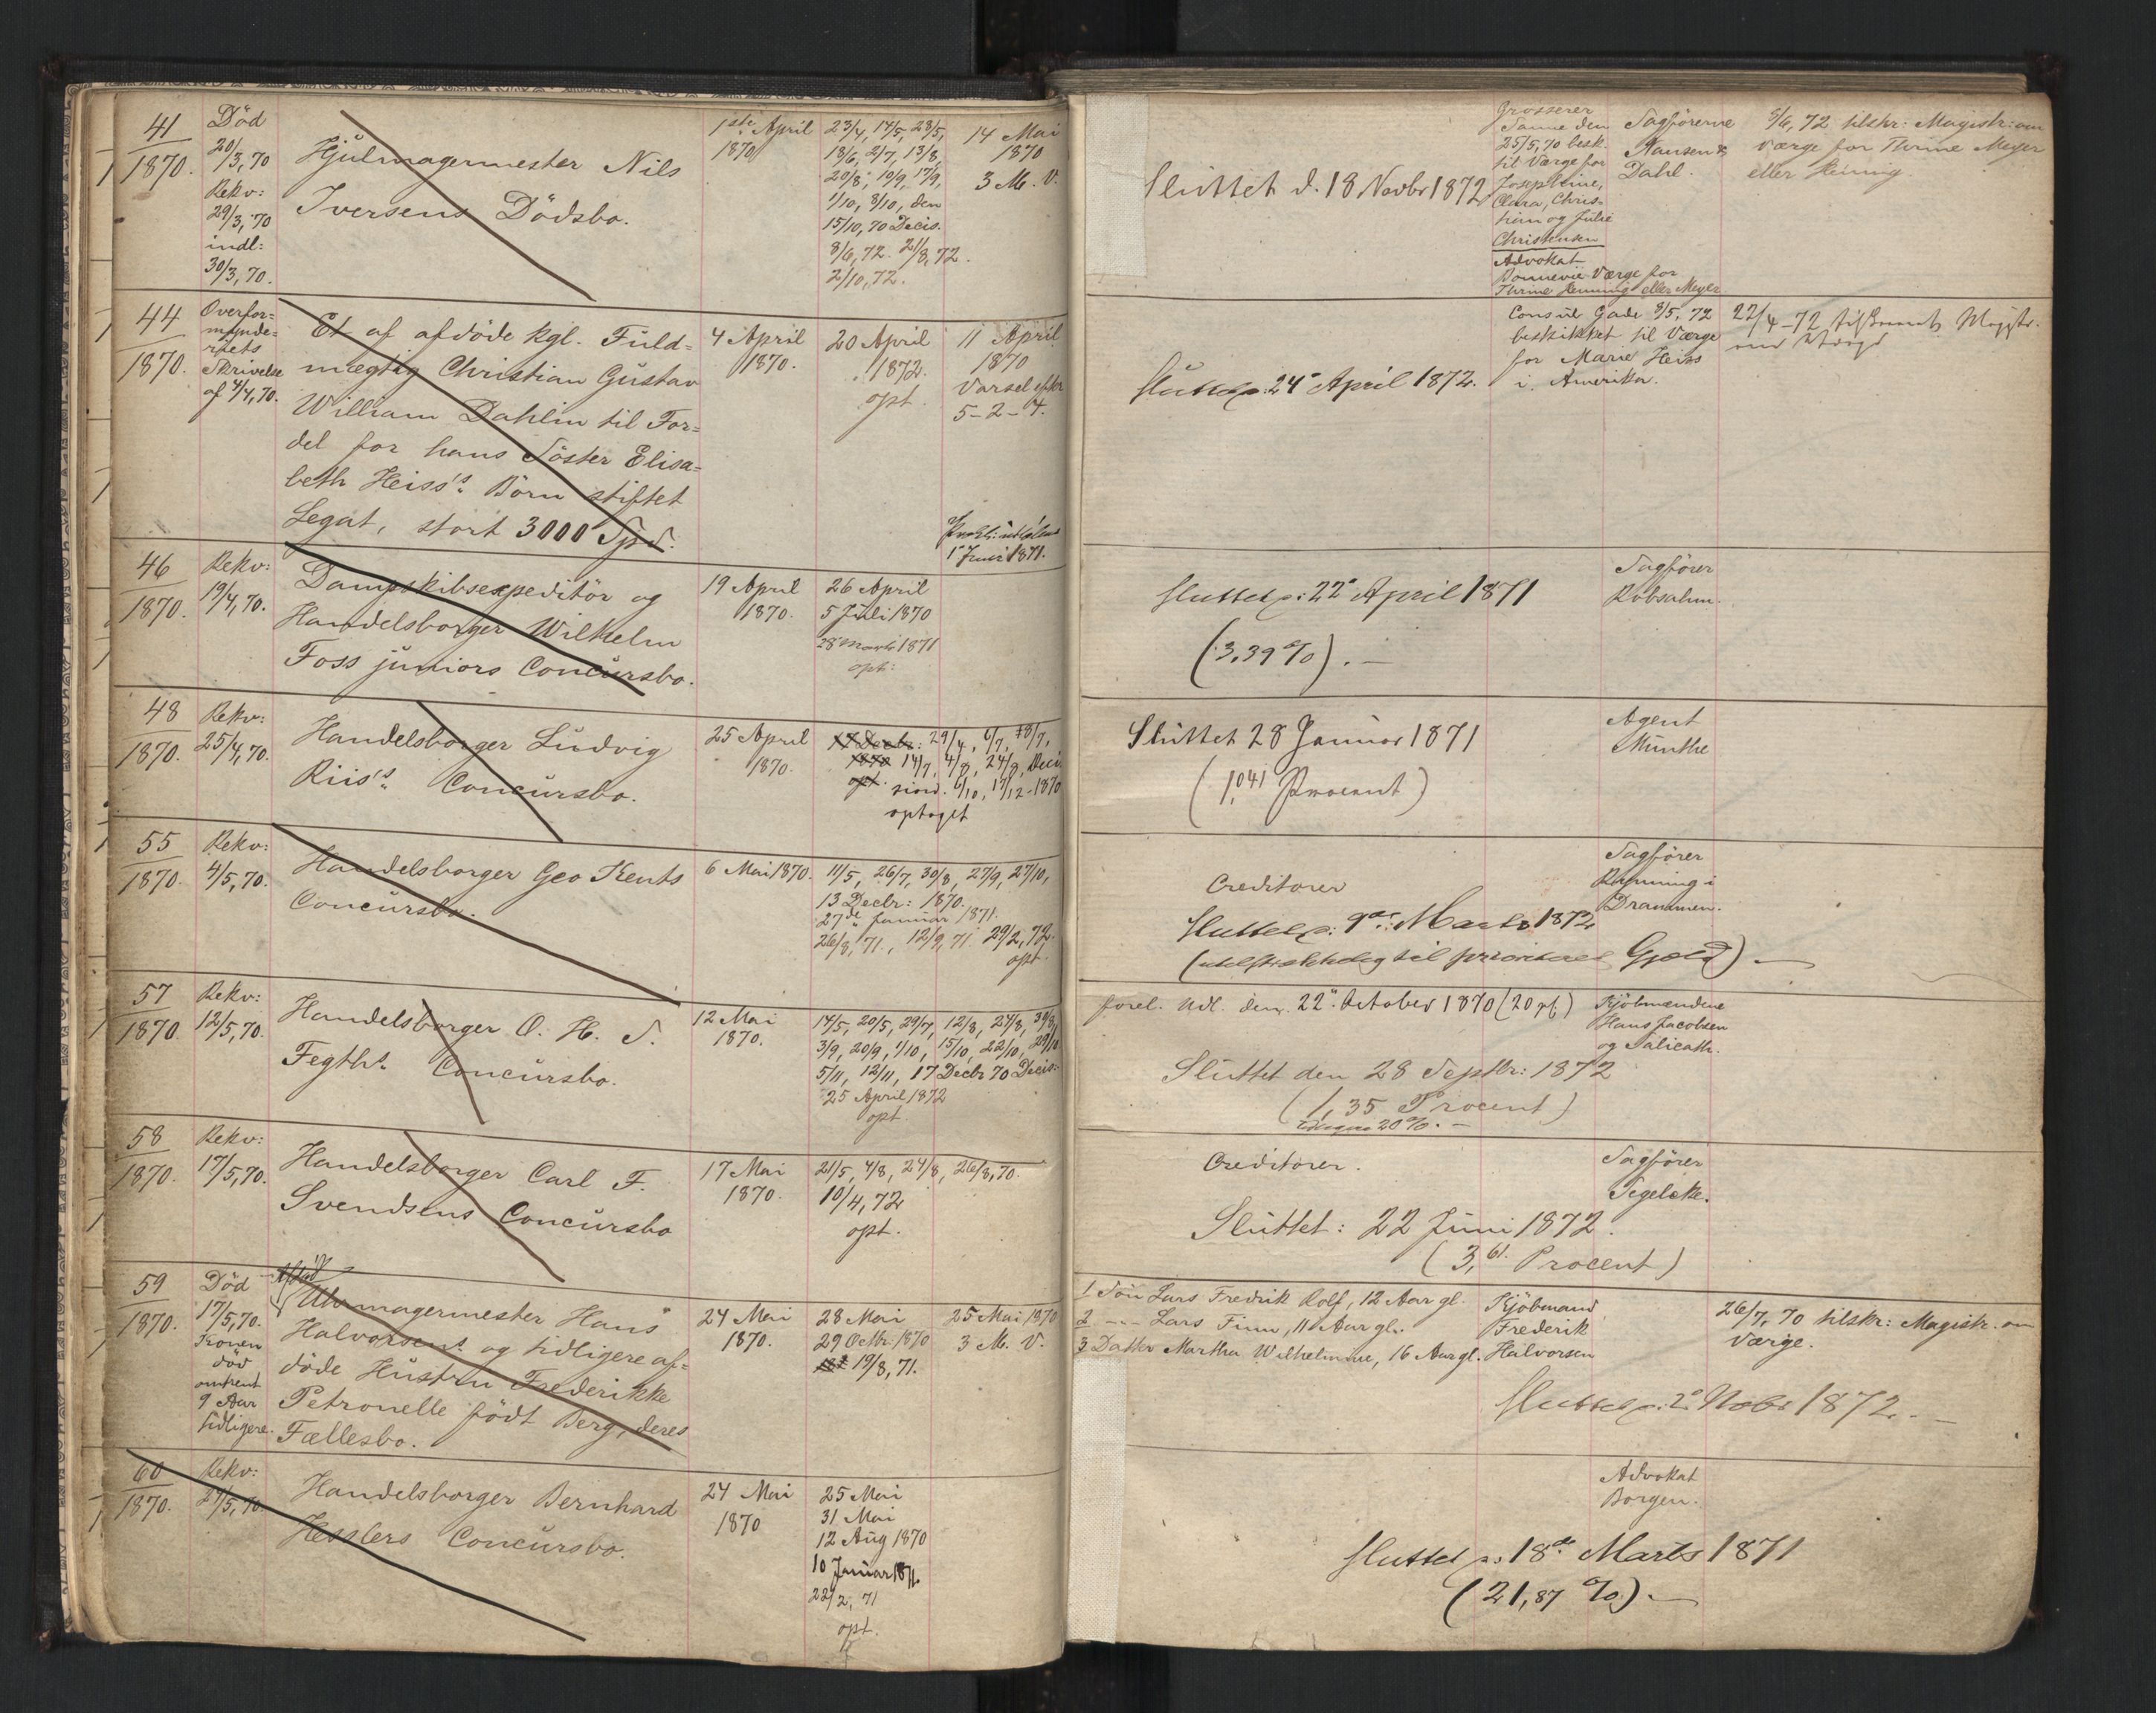 41
1870.
Död
20/3, 70
Rekv:
29/3, 70
indl:
30/3, 70.
Hjulmagermester Nils
Iversens Dödsbo.
1ste April
1870
23/4, 14/5, 28/5,
18/6, 2/7, 13/8,
20/8, 10/9, 17/9,
1/10, 8/10, den
15/10, 70 Decis.
8/6, 72. 21/8, 72.
2/10, 72.
14 Mai
1870
3 M. V.
Sluttet d. 18 Novbr 1872
Grosserer
Sanne den
25/5, 70 besk.
til Værge for
Josephine,
Clara, Chris-
tian og Julie
Christensen
Advokat
Bonnevie Værge for
Thrine Henning eller Meyer
Sagförerne
Nansen &
Dahl.
8/6, 72 tilskr: Magistr: om
Værge for Thrine Meyer
eller Hening.
44
1870.
Overfor=
mynde=
riets
Skrivelse
af 4/4, 70.
Et af afdöde kgl. Fuld=
mægtig Christian Gustav
William Dahlin til For=
del for hans Söster Elisa=
beth Heiss's Börn stiftet
Legat, stort 3000 Spd.
4 April
1870.
20 April
1872.
opt.
11 April
1870
Varsel efter
5-2-4.
1ste Juni 1871.
Sluttet p: 24de April 1872.
Consul Gade 8/5, 72
beskikket til Værge
for Marie Heiss
i Amerika.
22/4 - 72 Magistr.
om Værge
46
1870.
Rekv:
19/4, 70.
Dampskibsexpeditör og
Handelsborger Wilhelm
Foss juniors Concursbo.
19 April
1870.
26 April
5 Juli 1870
28 Marts 1871
opt:
Sluttet p: 22de April 1871
(3,39 %). —
Sagförer
Robsahm.
48
1870.
Rekv:
25/4, 70.
Handelsborger Ludvig
Riis's Concursbo.
25 April
1870.
17 Decbr: 29/4, 6/7, 18/7,
1870 14/7, 4/8, 24/8, Deci
opt. siord. 6/10, 17/12 - 1870
optaget
Sluttet 28 Januar 1871
(1,041 Procent)
Agent
Munthe
55
1870.
Rekv:
4/5, 70.
Handelsborger Geo Kents
Concursbo.
6 Mai 1870.
11/5, 26/7, 30/8, 27/9, 27/10,
13 Decbr: 1870.
27de Januar 1871.
26/8, 71. 12/9, 71. 29/2, 72.
opt.
Creditorer
Sluttet p: 9de Marts 1872
(utilstrækkelig til prioriteret Gjæld) —
Sagförer
i
Drammen.
57
1870.
Rekv:
12/5, 70.
Handelsborger O. H. S.
Fegths Concursbo.
12 Mai
1870.
14/5, 20/5, 29/7, 12/8, 27/8, 30/8,
3/9, 20/9, 1/10, 15/10, 22/10, 29/10
5/11, 12/11, 17 Decbr 70 Decis:
25 April 1872
opt.
forel. Udl. den 22de October 1870 (20 pCt)
Sluttet den 28 Septbr: 1872
(1,35 Procent)
20 %. —
Kjöbmændene
Hans Jacobsen
og Salicath.
58
1870.
Rekv:
17/5, 70.
Handelsborger Carl F.
Svendsens Concursbo
17 Mai
1870.
21/5, 4/8, 24/8, 26/8, 70.
10/4, 72
opt.
Creditorer.
Sluttet: 22 Juni 1872.
(3,61. Procent)
Sagförer
Segelcke.
59
1870.
Död
17/5, 70.
Konen
död
omtrent
9 Aar
tidligere.
Afdöd
Uhrmagermester Hans
Halvorsens og tidligere af=
döde Hustru Frederikke
Petronelle födt Berg, deres
Fællesbo.
24 Mai
1870.
28 Mai
29 Octbr: 1870
19/8, 71.
25 Mai 1870
3 M. V.
1 Sön Lars Fredrik Rolf, 12 Aar gl.
2 --- Lars Finn, 11 Aar gl.
3 Datter Martha Wilhelmine, 16 Aar gl.
Kjöbmand
Frederik
Halvorsen
26/7, 70 tilskr: Magistr. om
Værge.
Sluttet p: 2de Novbr 1872. —
60
1870.
Rekv:
24/5, 70.
Handelsborger Bernhard
Hesslers Concursbo.
24 Mai
1870
25 Mai
31 Mai
12 Aug 1870
10 Januar 1871.
22/2, 71
opt.
Advokat
Borgen.
Sluttet p: 18de Marts 1871
(21,87 %). —